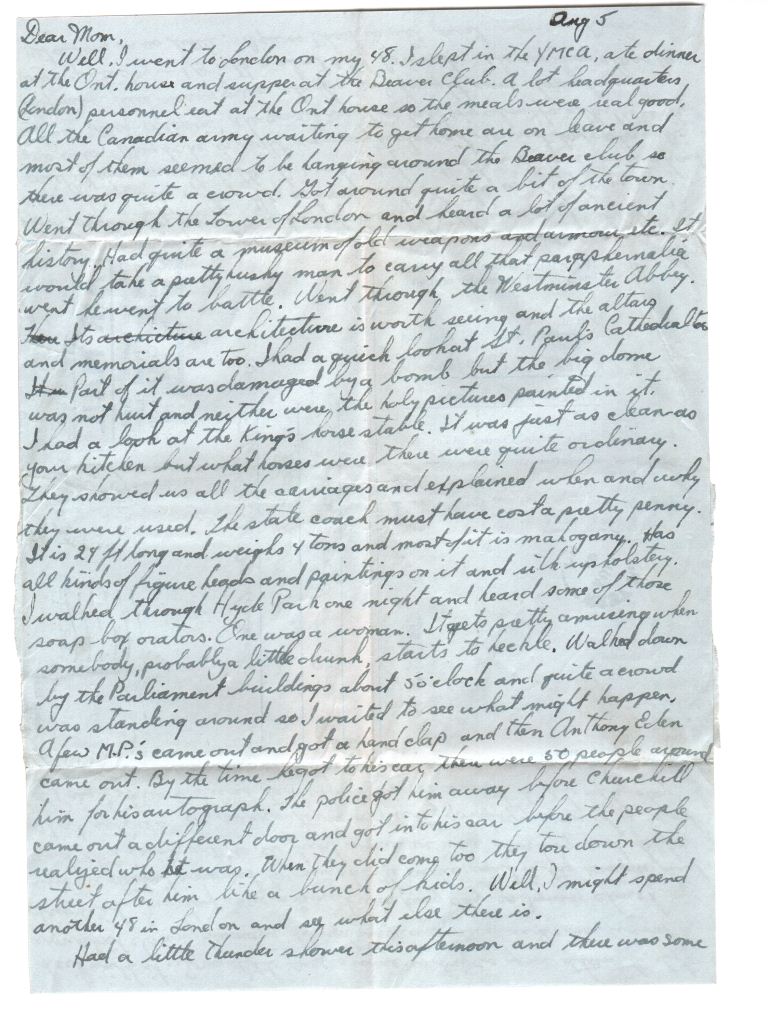 Aug 5
Dear Mom,
Well, I went to London on my 48. I slept in the YMCA, ate dinner
at the Ont. house and supper at the Beaver Club. A lot headquarters
(London) personnel eat at the Ont house so the meals were real good.
All the Canadian army waiting to get home are on leave and
most of them seemed to be hanging around the Beaver club so
there was quite a crowd. Got around quite a bit of the town
Went through the Tower of London and heard a lot of ancient
history. Had quite a museum of old weapons and armour etc. It
would take a pretty husky man to carry all that paraphernalia
went he went to battle. Went through the Westminster Abbey.
Its archicture architecture is worth seeing and the altars
and memorials are too. I had a quick look at St. Paul's Cathedral too
Part of it was damaged by a bomb but the big dome
was not hurt and neither were the holy pictures painted in it.
I had a look at the King's horse stable. It was just as clean as
your kitchen but what horses were there were quite ordinary.
They showed us all the carriages and explained when and why
they were used. The state coach must have cost a pretty penny.
It is 24 ft long and weighs 4 tons and most of it is mahogany. Has
all kinds of figure heads and paintings on it and silk upholstery.
I walked through Hyde Park one night and heard some of those
soap box orators. One was a woman. It gets pretty amusing when
somebody, probably a little drunk, starts to heckle. Walked down
by the Parliament buildings about 5 o'clock and quite a crowd
was standing around so I waited to see what might happen.
A few M.P.'s came out and got a hand clap and then Anthony Eden
came out. By the time he got to his car, there were 50 people around
him for his autograph. The police got him away before Churchill
came out a different door and got into his car before the people
realized who it was. When they did come too they tore down the
street after him like a bunch of kids. Well, I might spend
another 48 in London and see what else there is.
Had a little thunder shower this afternoon and there was some